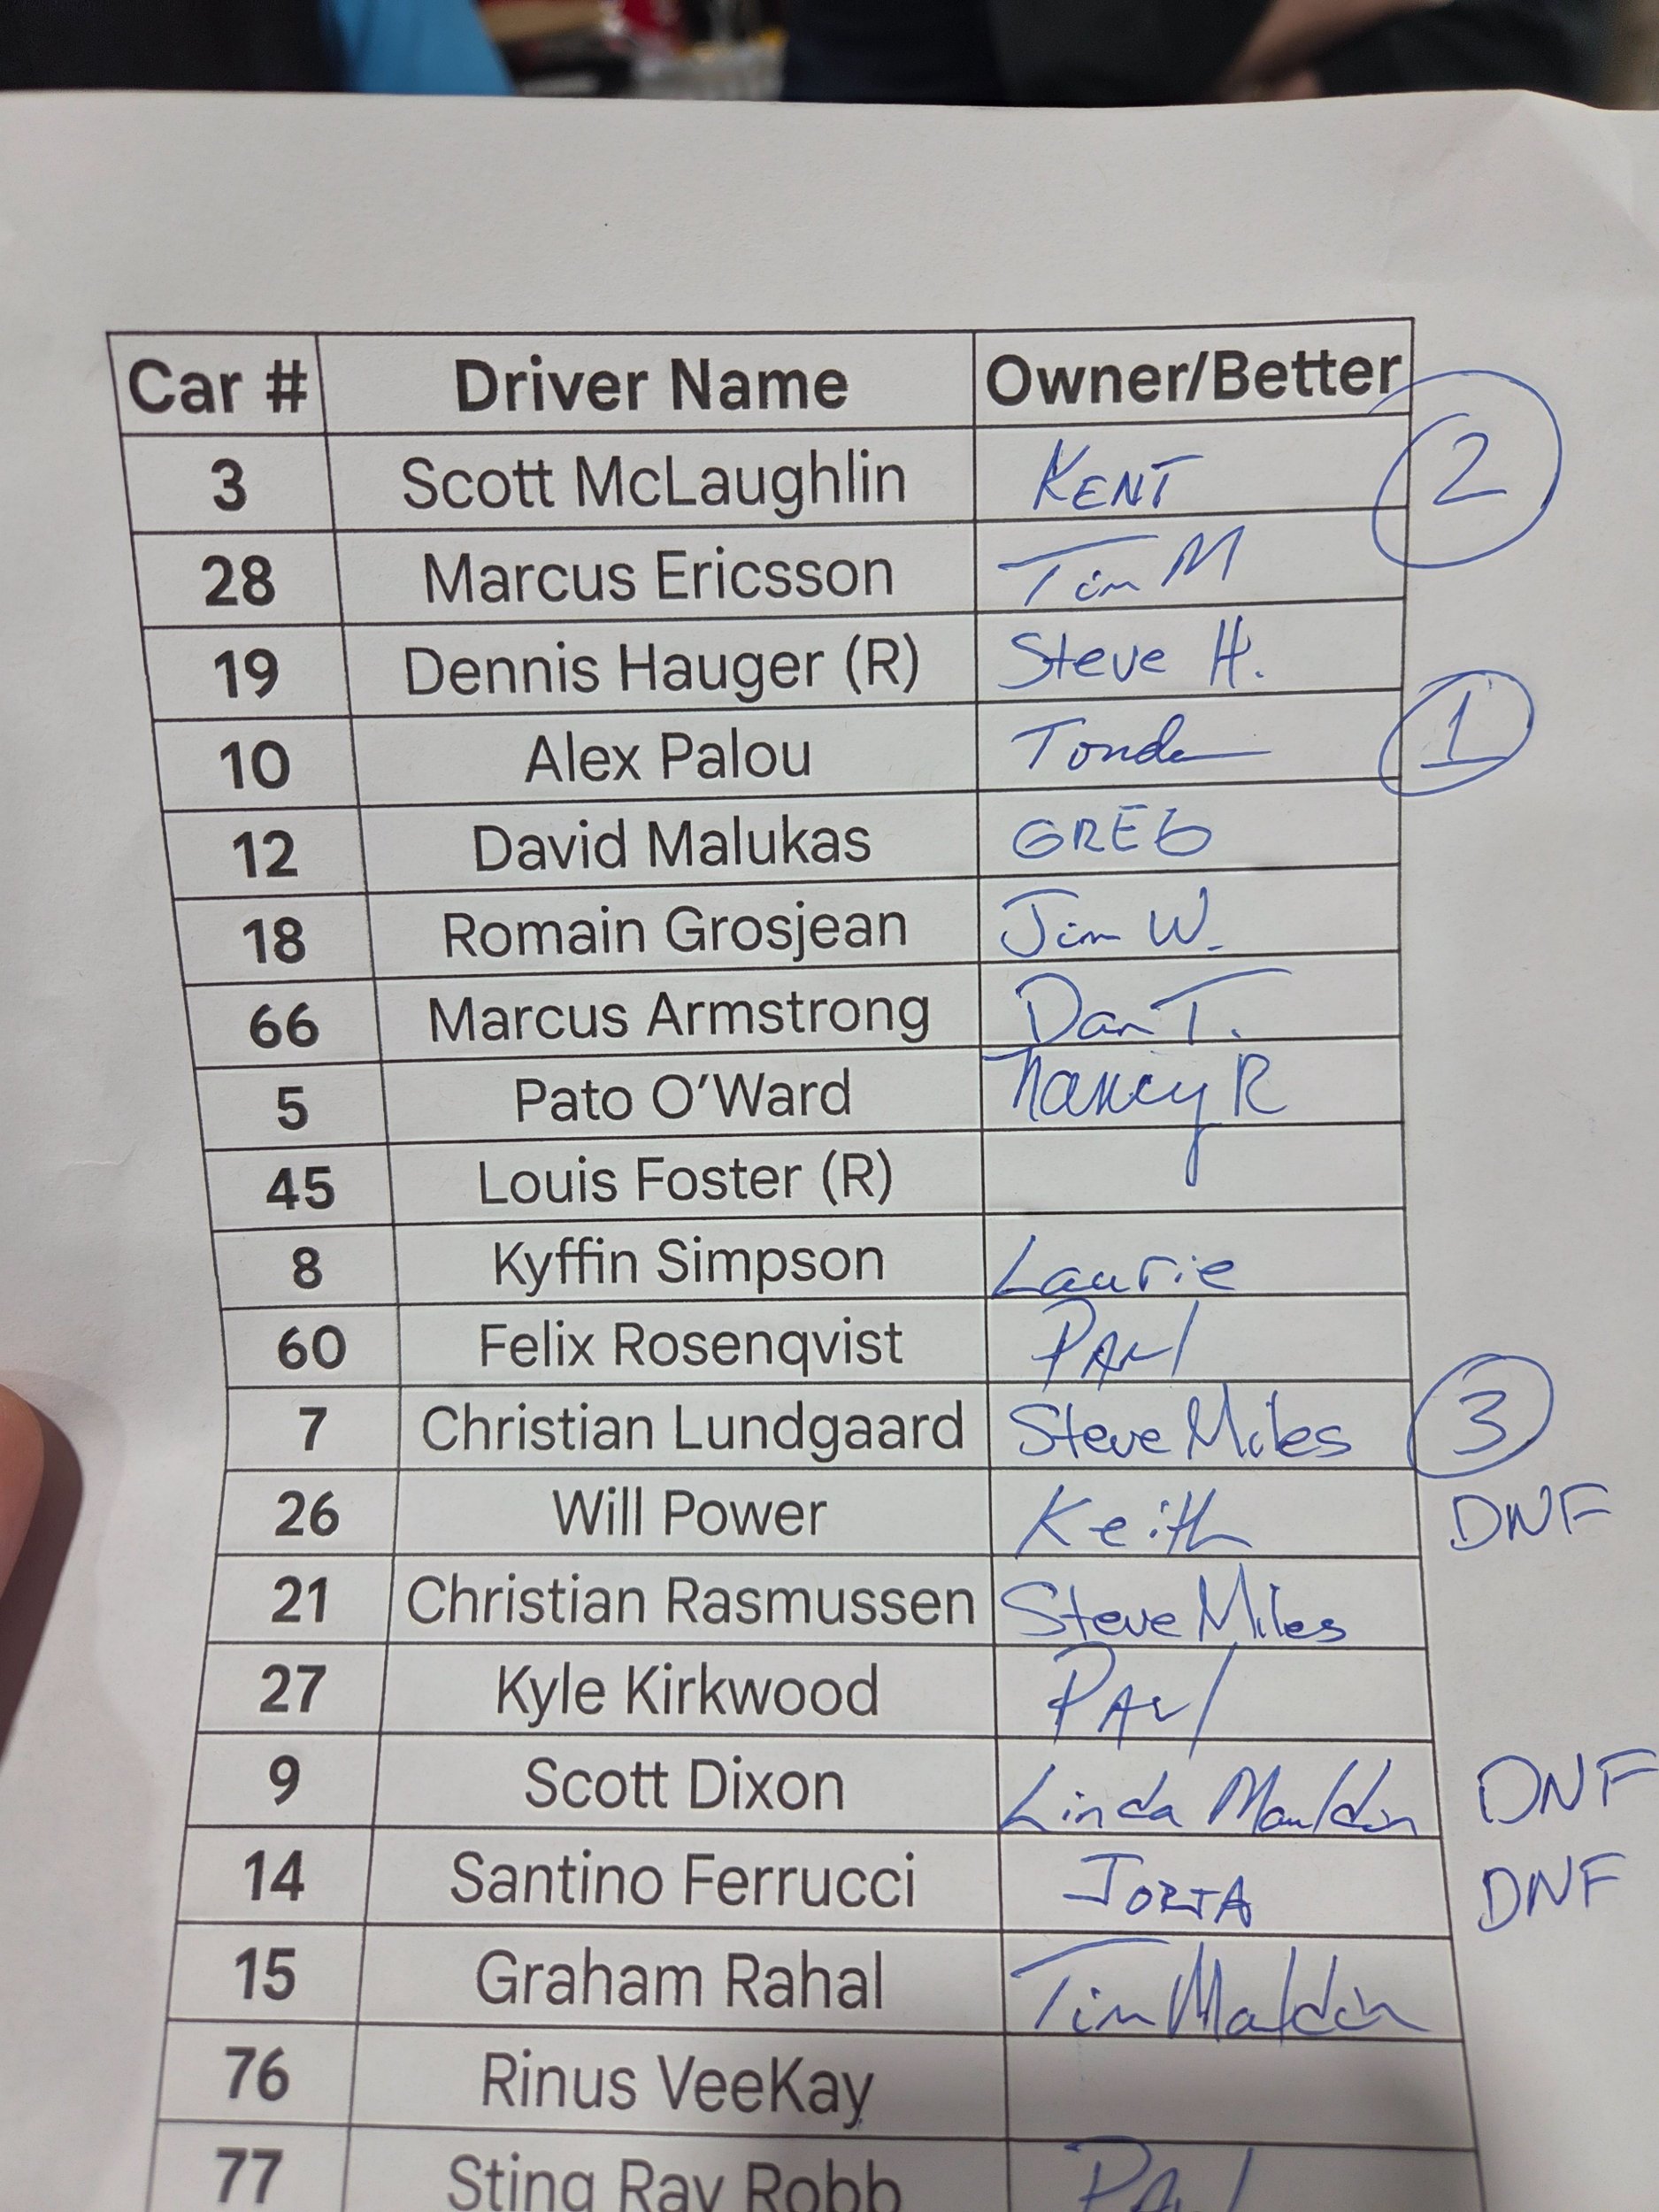 Car # Driver Name Owner/Better
3 Scott McLaughlin KENT 2
28 Marcus Ericsson Tim M
19 Dennis Hauger (R) Steve H.
10 Alex Palou Tonda 1
12 David Malukas GREG
18 Romain Grosjean Jim W.
66 Marcus Armstrong Dan T.
5 Pato O'Ward Nancy R
45 Louis Foster (R)
8 Kyffin Simpson Laurie
60 Felix Rosenqvist PAul
7 Christian Lundgaard Steve Miles 3
26 Will Power Keith DNF
21 Christian Rasmussen Steve Miles
27 Kyle Kirkwood PAul
9 Scott Dixon Linda Mauldin DNF
14 Santino Ferrucci DNF
15 Graham Rahal Tim Mauldin
76 Rinus VeeKay
77 Sting Ray Robb PAul